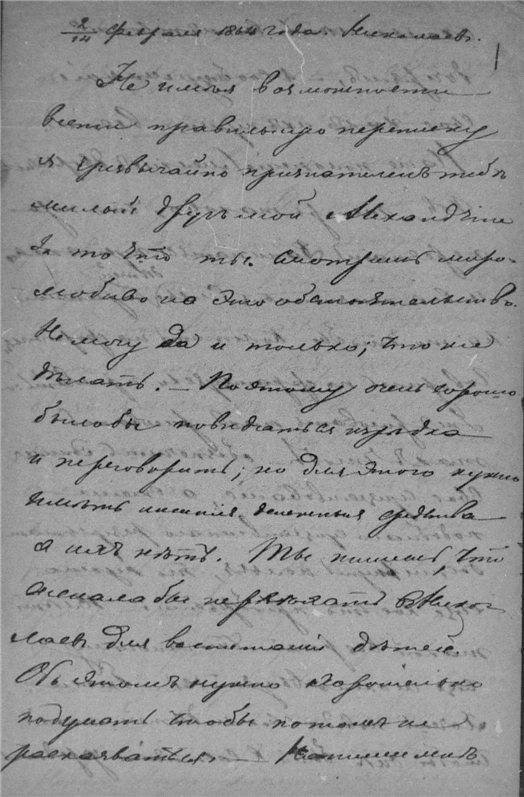 2/14 февраля 1864 года. Николаевъ.
1
Не имѣя возможности
вести правильную переписку
я чрезвычайно признателенъ тебѣ
милый другъ мой Александръ
за то что ты смотришь миро-
любиво на это обстоятельство.
Не могу да и только; что же
дѣлать. — Поэтому очень хорошо
было бы повидаться изрѣдка
и переговорить; но для этого нужно
имѣть лишнія денежныя средства
а ихъ нѣтъ. Ты пишешь, что
желала бы переѣхать в Нико-
лаевъ для воспитанія дѣтей.
Объ этомъ нужно хорошенько
подумать чтобы потомъ не
раскаяваться. — Напиши мнѣ